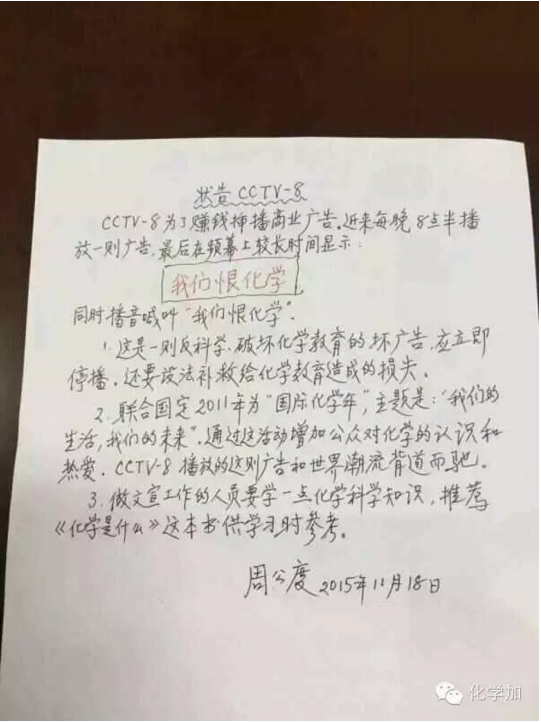 状告CCTV-8
CCTV-8为了赚钱插播商业广告。近来每晚8点半播
放一则广告,最后在频幕上较长时间显示:
我们恨化学
同时播音喊叫“我们恨化学”.
1.这是一则反科学、破坏化学教育的坏广告,应立即
停播。还要设法补救给化学教育造成的损失。
2.联合国定2011年为“国际化学年”,主题是:“我们的
生活,我们的未来”。通过这活动增加公众对化学的认识和
热爱。CCTV-8播放的这则广告和世界潮流背道而驰。
3.做文宣工作的人员要学一点化学科学知识,推荐
《化学是什么》这本书供学习时参考。
周公度 2015年11月18日
化学加